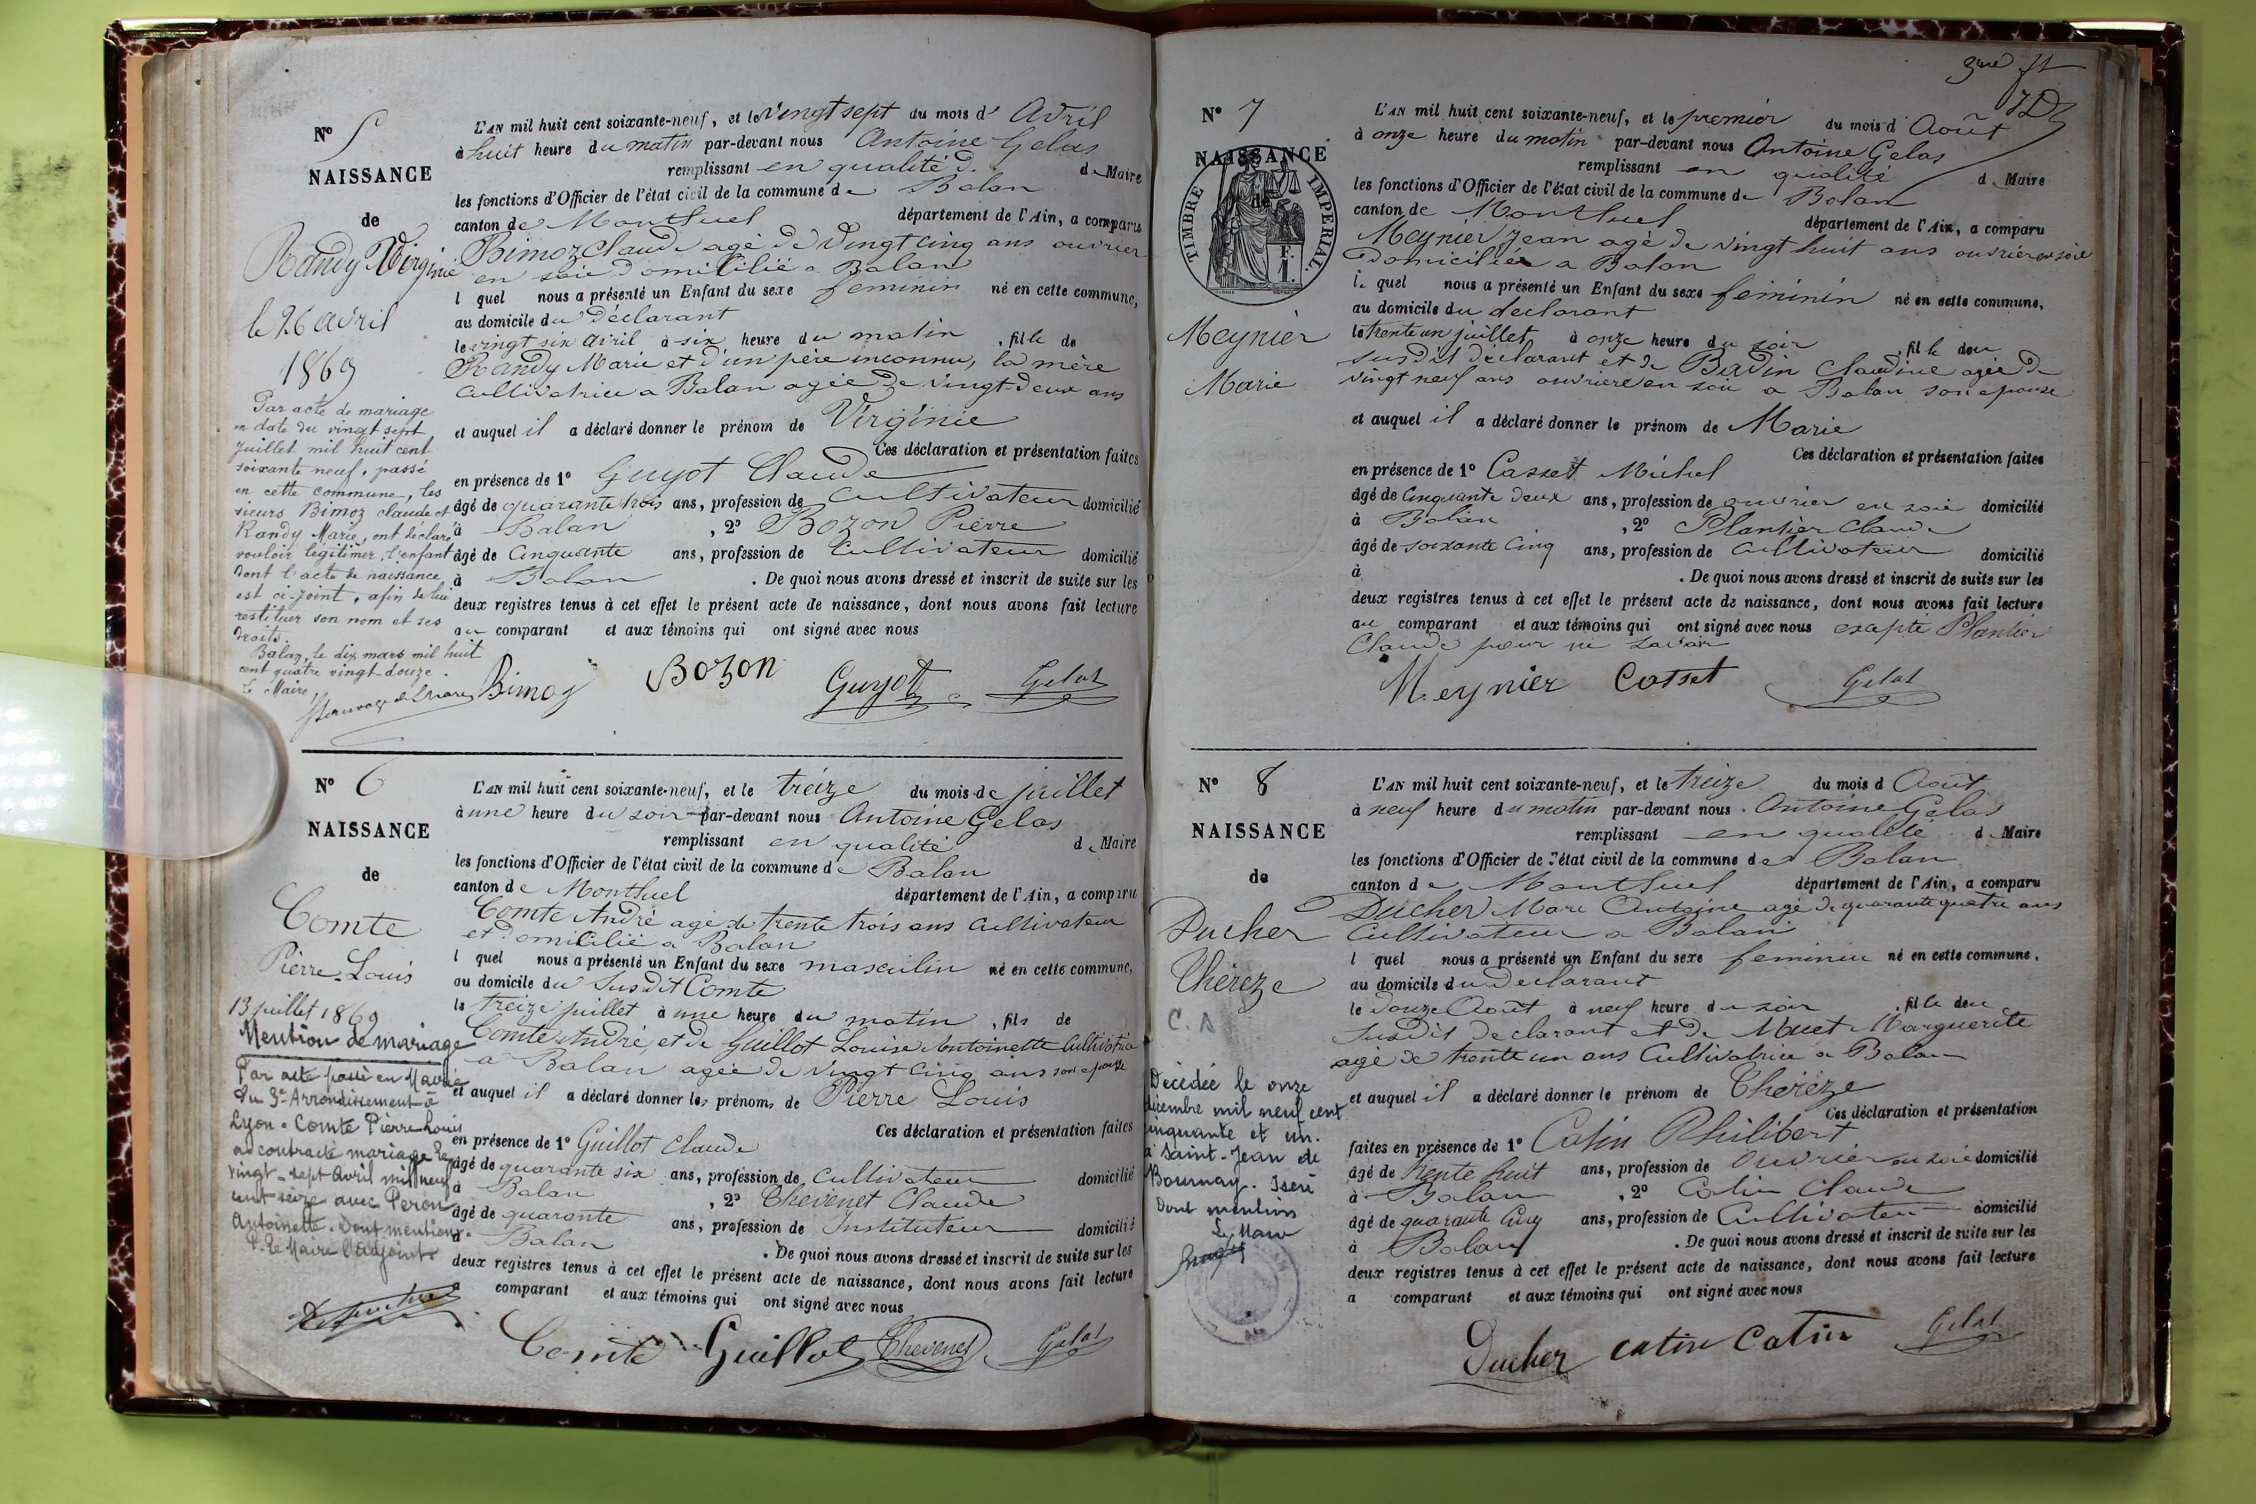 N° 5
NAISSANCE
de
Randy Virginie
le 26 avril
1869
Par acte de mariage
en date du vingt sept
juillet mil huit cent
soixante neuf, passé
en cette commune, les
sieurs Bimoz claude et
Randy Marie, ont déclaré
vouloir légitimer l'enfant
dont l'acte de naissance
est ci-joint, afin de lui
restituer son nom et ses
droits.
Balan, le dix mars mil huit
cent quatre vingt douze.
Le Maire,
L'AN mil huit cent soixante-neuf, et le vingt sept du mois d' Avril
à huit heure du matin par-devant nous Antoine Gelas
remplissant en qualité d. de Maire
les fonctions d'Officier de l'état civil de la commune de Balan
canton de Montluel département de l'Ain, a comparu
Bimoz Claude agé de vingt cinq ans ouvrier
en soie domicilié a Balan
l quel nous a présenté un Enfant du sexe feminin né en cette commune,
au domicile du déclarant
le vingt six avril à six heure du matin, fille de
Randy Marie et d'un père inconnu, la mère
cultivatrice a Balan agée de vingt deux ans
et auquel il a déclaré donner le prénom de Virginie
Ces déclaration et présentation faites
en présence de 1° Guyot Claude
âgé de quarante trois ans, profession de cultivateur domicilié
à Balan, 2° Bozon Pierre
âgé de Cinquante ans, profession de Cultivateur domicilié
à Balan. De quoi nous avons dressé et inscrit de suite sur les
deux registres tenus à cet effet le présent acte de naissance, dont nous avons fait lecture
au comparant et aux témoins qui ont signé avec nous
Bimoz Bozon Guyot Gelas
N° 6
NAISSANCE
de
Comte
Pierre-Louis
13 juillet 1869
Mention de mariage
Par acte passé en Mairie
du 3e Arrondissement à
Lyon. Comte Pierre Louis
a contracté mariage le
vingt-sept avril mil neuf
cent seize avec Peron
Antoinette. Dont mention.
P. Le Maire l'adjoint
L'AN mil huit cent soixante-neuf, et le treize du mois de juillet
à une heure du soir par-devant nous Antoine Gelas
remplissant en qualité de Maire
les fonctions d'Officier de l'état civil de la commune de Balan
canton de Montluel département de l'Ain, a comparu
Comte André agé de trente trois ans cultivateur
et domicilié a Balan
l quel nous a présenté un Enfant du sexe masculin né en cette commune,
au domicile du Susdit Comte
le treize juillet à une heure du matin, fils de
Comte André, et de Guillot Louise Antoinette Cultivatrice
a Balan agée de vingt cinq ans son epouse
et auquel il a déclaré donner les prénoms de Pierre Louis
Ces déclaration et présentation faites
en présence de 1° Guillot Claude
âgé de quarante six ans, profession de cultivateur domicilié
à Balan, 2° Thevenet Claude
âgé de quarante ans, profession de Instituteur domicilié
à Balan. De quoi nous avons dressé et inscrit de suite sur les
deux registres tenus à cet effet le présent acte de naissance, dont nous avons fait lecture
comparant et aux témoins qui ont signé avec nous
Comte Guillot Thevenet Gelas
3me ft
N° 7
NAISSANCE
de
TIMBRE IMPERIAL.
Meynier
Marie
L'AN mil huit cent soixante-neuf, et le premier du mois d' Août
à onze heure du matin par-devant nous Antoine Gelas
remplissant en qualité de Maire
les fonctions d'Officier de l'état civil de la commune de Balan
canton de Montluel département de l'Ain, a comparu
Meynier Jean agé de vingt huit ans ouvrier en soie
domicilié a Balan
le quel nous a présenté un Enfant du sexe feminin né en cette commune,
au domicile du declarant
le trente un juillet à onze heure du soir, fille deu
susdit déclarant et de Badin Claudine agée de
vingt neuf ans ouvriere en soie a Balan son epouse
et auquel il a déclaré donner le prénom de Marie
Ces déclaration et présentation faites
en présence de 1° Casset Michel
âgé de Cinquante deux ans, profession de ouvrier en soie domicilié
à Balan, 2° Plantier Claude
âgé de soixante cinq ans, profession de cultivateur domicilié
à. De quoi nous avons dressé et inscrit de suite sur les
deux registres tenus à cet effet le présent acte de naissance, dont nous avons fait lecture
au comparant et aux témoins qui ont signé avec nous exapté Plantier
Claude pour ne savoir
Meynier Casset Gelas
N° 8
NAISSANCE
de
Ducher
Thérèze
C. A
Décédée le onze
décembre mil neuf cent
cinquante et un.
a Saint-Jean de
Bournay. Isère
Dont mention
Le Maire
L'AN mil huit cent soixante-neuf, et le treize du mois d Août
à neuf heure du matin par-devant nous Antoine Gelas
remplissant en qualité de Maire
les fonctions d'Officier de l'état civil de la commune de Balan
canton de Montluel département de l'Ain, a comparu
Ducher Marc Antoine agé de quarante quatre ans
Cultivateur a Balan
l quel nous a présenté un Enfant du sexe feminin né en cette commune,
au domicile du declarant
le douze Août à neuf heure du soir, fille deu
susdit declarant et de Muet Marguerite
agé de trente un ans Cultivatrice a Balan
et auquel il a déclaré donner le prénom de Thérèze
Ces déclaration et présentation
faites en présence de 1° Catin Philibert
âgé de trente huit ans, profession de Ouvrier en soie domicilié
à Balan, 2° Catin Claude
âgé de quarante Cinq ans, profession de Cultivateur domicilié
à Balan. De quoi nous avons dressé et inscrit de suite sur les
deux registres tenus à cet effet le présent acte de naissance, dont nous avons fait lecture
a comparant et aux témoins qui ont signé avec nous
Ducher catin Catin Gelas